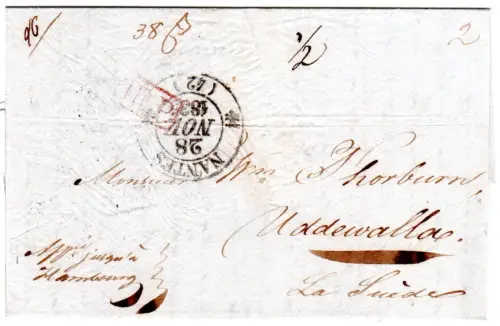 38
1/2
2
NANTES
28
NOV
183
(42)
Monsieur Wm Thorburn
Uddewalla
La Suède
Affri jusqu'à
Hambourg